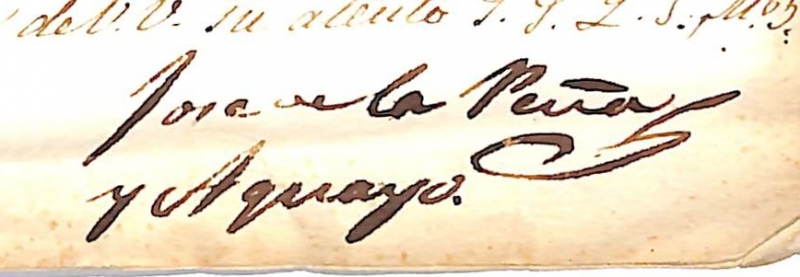 de V. V. su atento S. S. Q. S. M. B.
Jose de la Peña
y Aguayo.